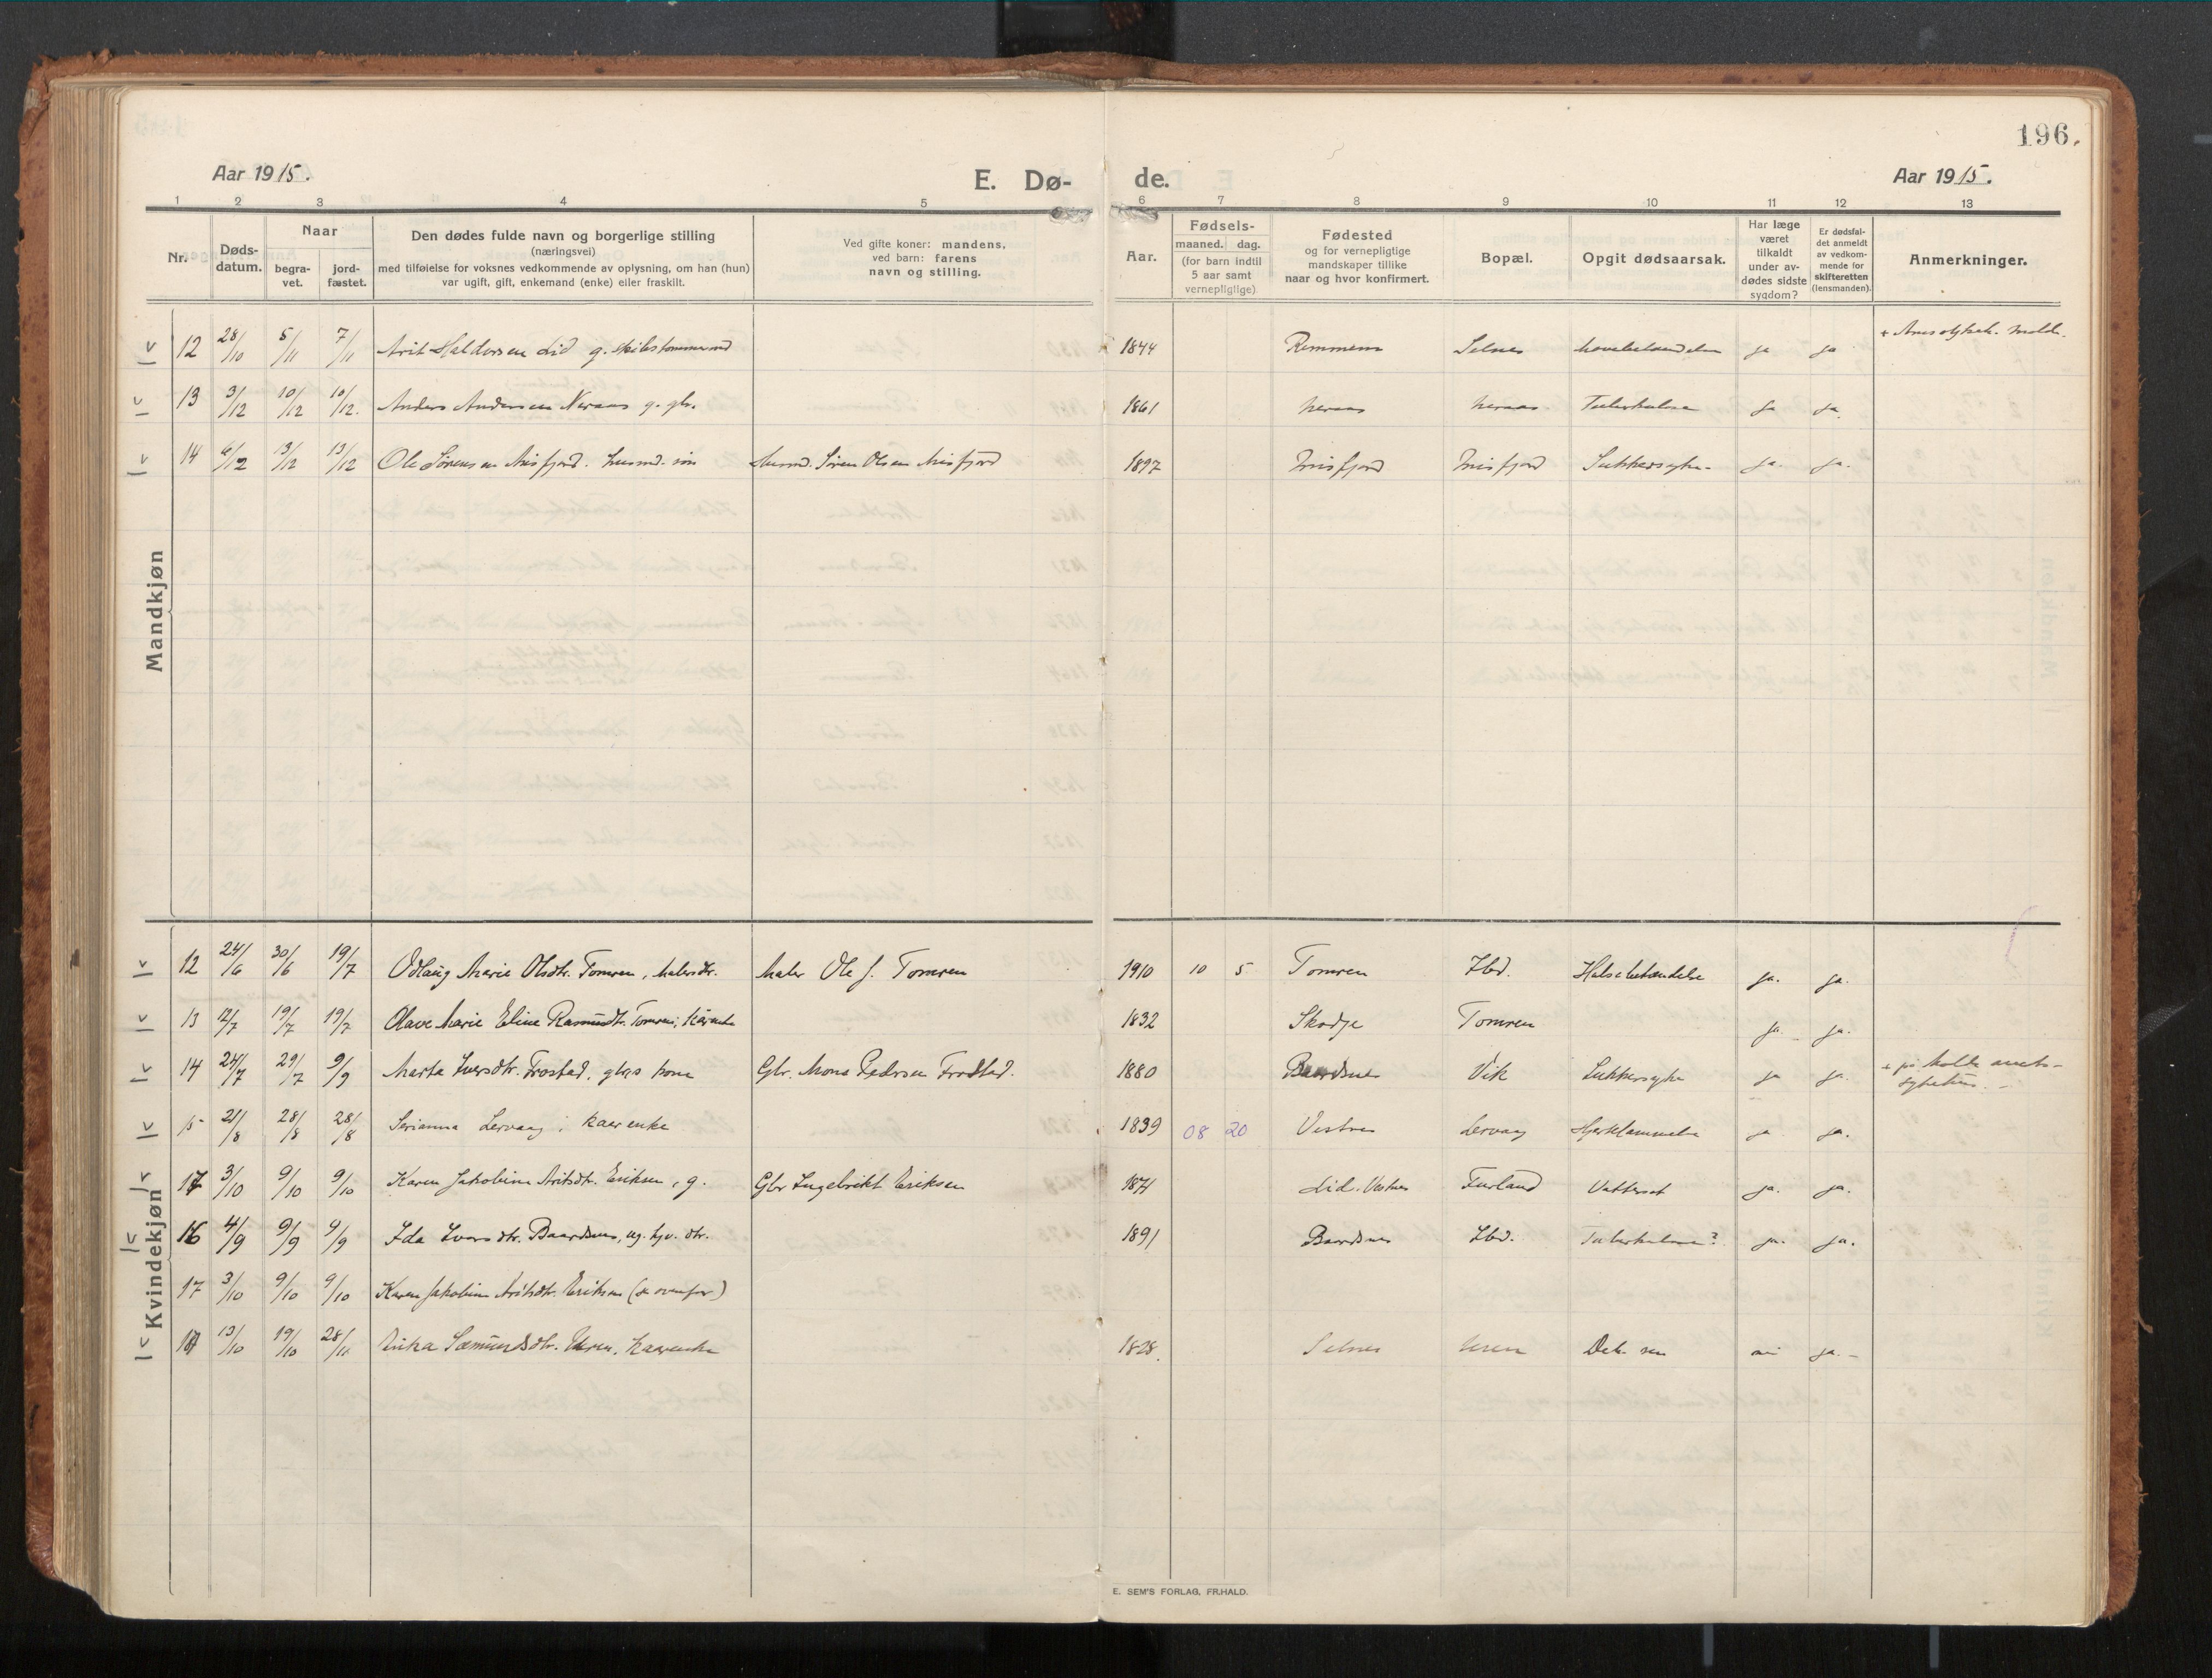 196.
Aar 1915.
E. Dø-
de.
Aar 1915.
1 2 3 4 5 6 7 8 9 10 11 12 13
Nr.
Døds-
datum.
Naar
begra-
vet.
jord-
fæstet.
Den dødes fulde navn og borgerlige stilling
(næringsvei)
med tilføielse for voksnes vedkommende av oplysning, om han (hun)
var ugift, gift, enkemand (enke) eller fraskilt.
Ved gifte koner: mandens,
ved barn: farens
navn og stilling.
Aar.
Fødsels-
maaned. dag.
(for barn indtil
5 aar samt
vernepligtige)
Fødested
og for vernepligtige
mandskaper tillike
naar og hvor konfirmert.
Bopæl.
Opgit dødsaarsak.
Har læge
været
tilkaldt
under av-
dødes sidste
sygdom?
Er dødsfal-
det anmeldt
av vedkom-
mende for
skifteretten
(lensmanden).
Anmerkninger.
Mandkjøn
12 28/10 5/11 7/11 Arit Haldorsen Lid g. 1844 Remmem Selnes ja ja
13 3/12 10/12 10/12. Anders Andersen Neraas g. gbr. 1861 Neraas Neraas Tuberkulose ja ja.
14 6/12 13/12 13/12 Ole Sørensen Misfjord. husmd. søn Husmd. Søren Olsen Misfjord 1897 Misfjord Misfjord Sukkersyke- ja. ja.
Kvindekjøn
12 24/6 30/6 19/7 Odlaug Marie Olsdtr. Tomren, Malersdtr. Maler Ole J. Tomren 1910 10 5 Tomren Ibd. Halsebetændelse ja. ja.
13 12/7 19/7 19/7 Olave Marie Eline Rasmusdtr. Tomren, Kårenke 1832 Skodje Tomren ja. ja.
14 24/7 29/7 9/9 Marta Iversdtr. Frostad, gbrs kone Gbr. Mons Pedersen Frostad. 1880 Baardsnes Vik Sukkersyke ja ja. + på Molde amts-
sykehus. -
15 21/8 28/8 28/8 Serianna Lervaag, kaarenke 1839 08 20 Vestnes Lervaag Hjertelammelse ja ja.
17 3/10 9/10 9/10 Karen Jakobine Aritsdtr. Eriksen, g. Gbr Ingebrikt Eriksen 1871 Lid. Vestnes Furland Vattersot ja. ja.
16 4/9 9/9 9/9 Ida Iversdtr. Baardsnes, ug. tjv. dtr. 1891 Baardsnes Ibd. Tuberkulose? ja. ja.
17 3/10 9/10 9/10 Karen Jakobine Aritsdtr. Eriksen (se ovenfor)
18 13/10 19/10 28/11 Erika Sæmundsdtr. Uren, Kaarenke 1828. Selnes Uren nei ja. -
E. SEM'S FORLAG, FR.HALD.